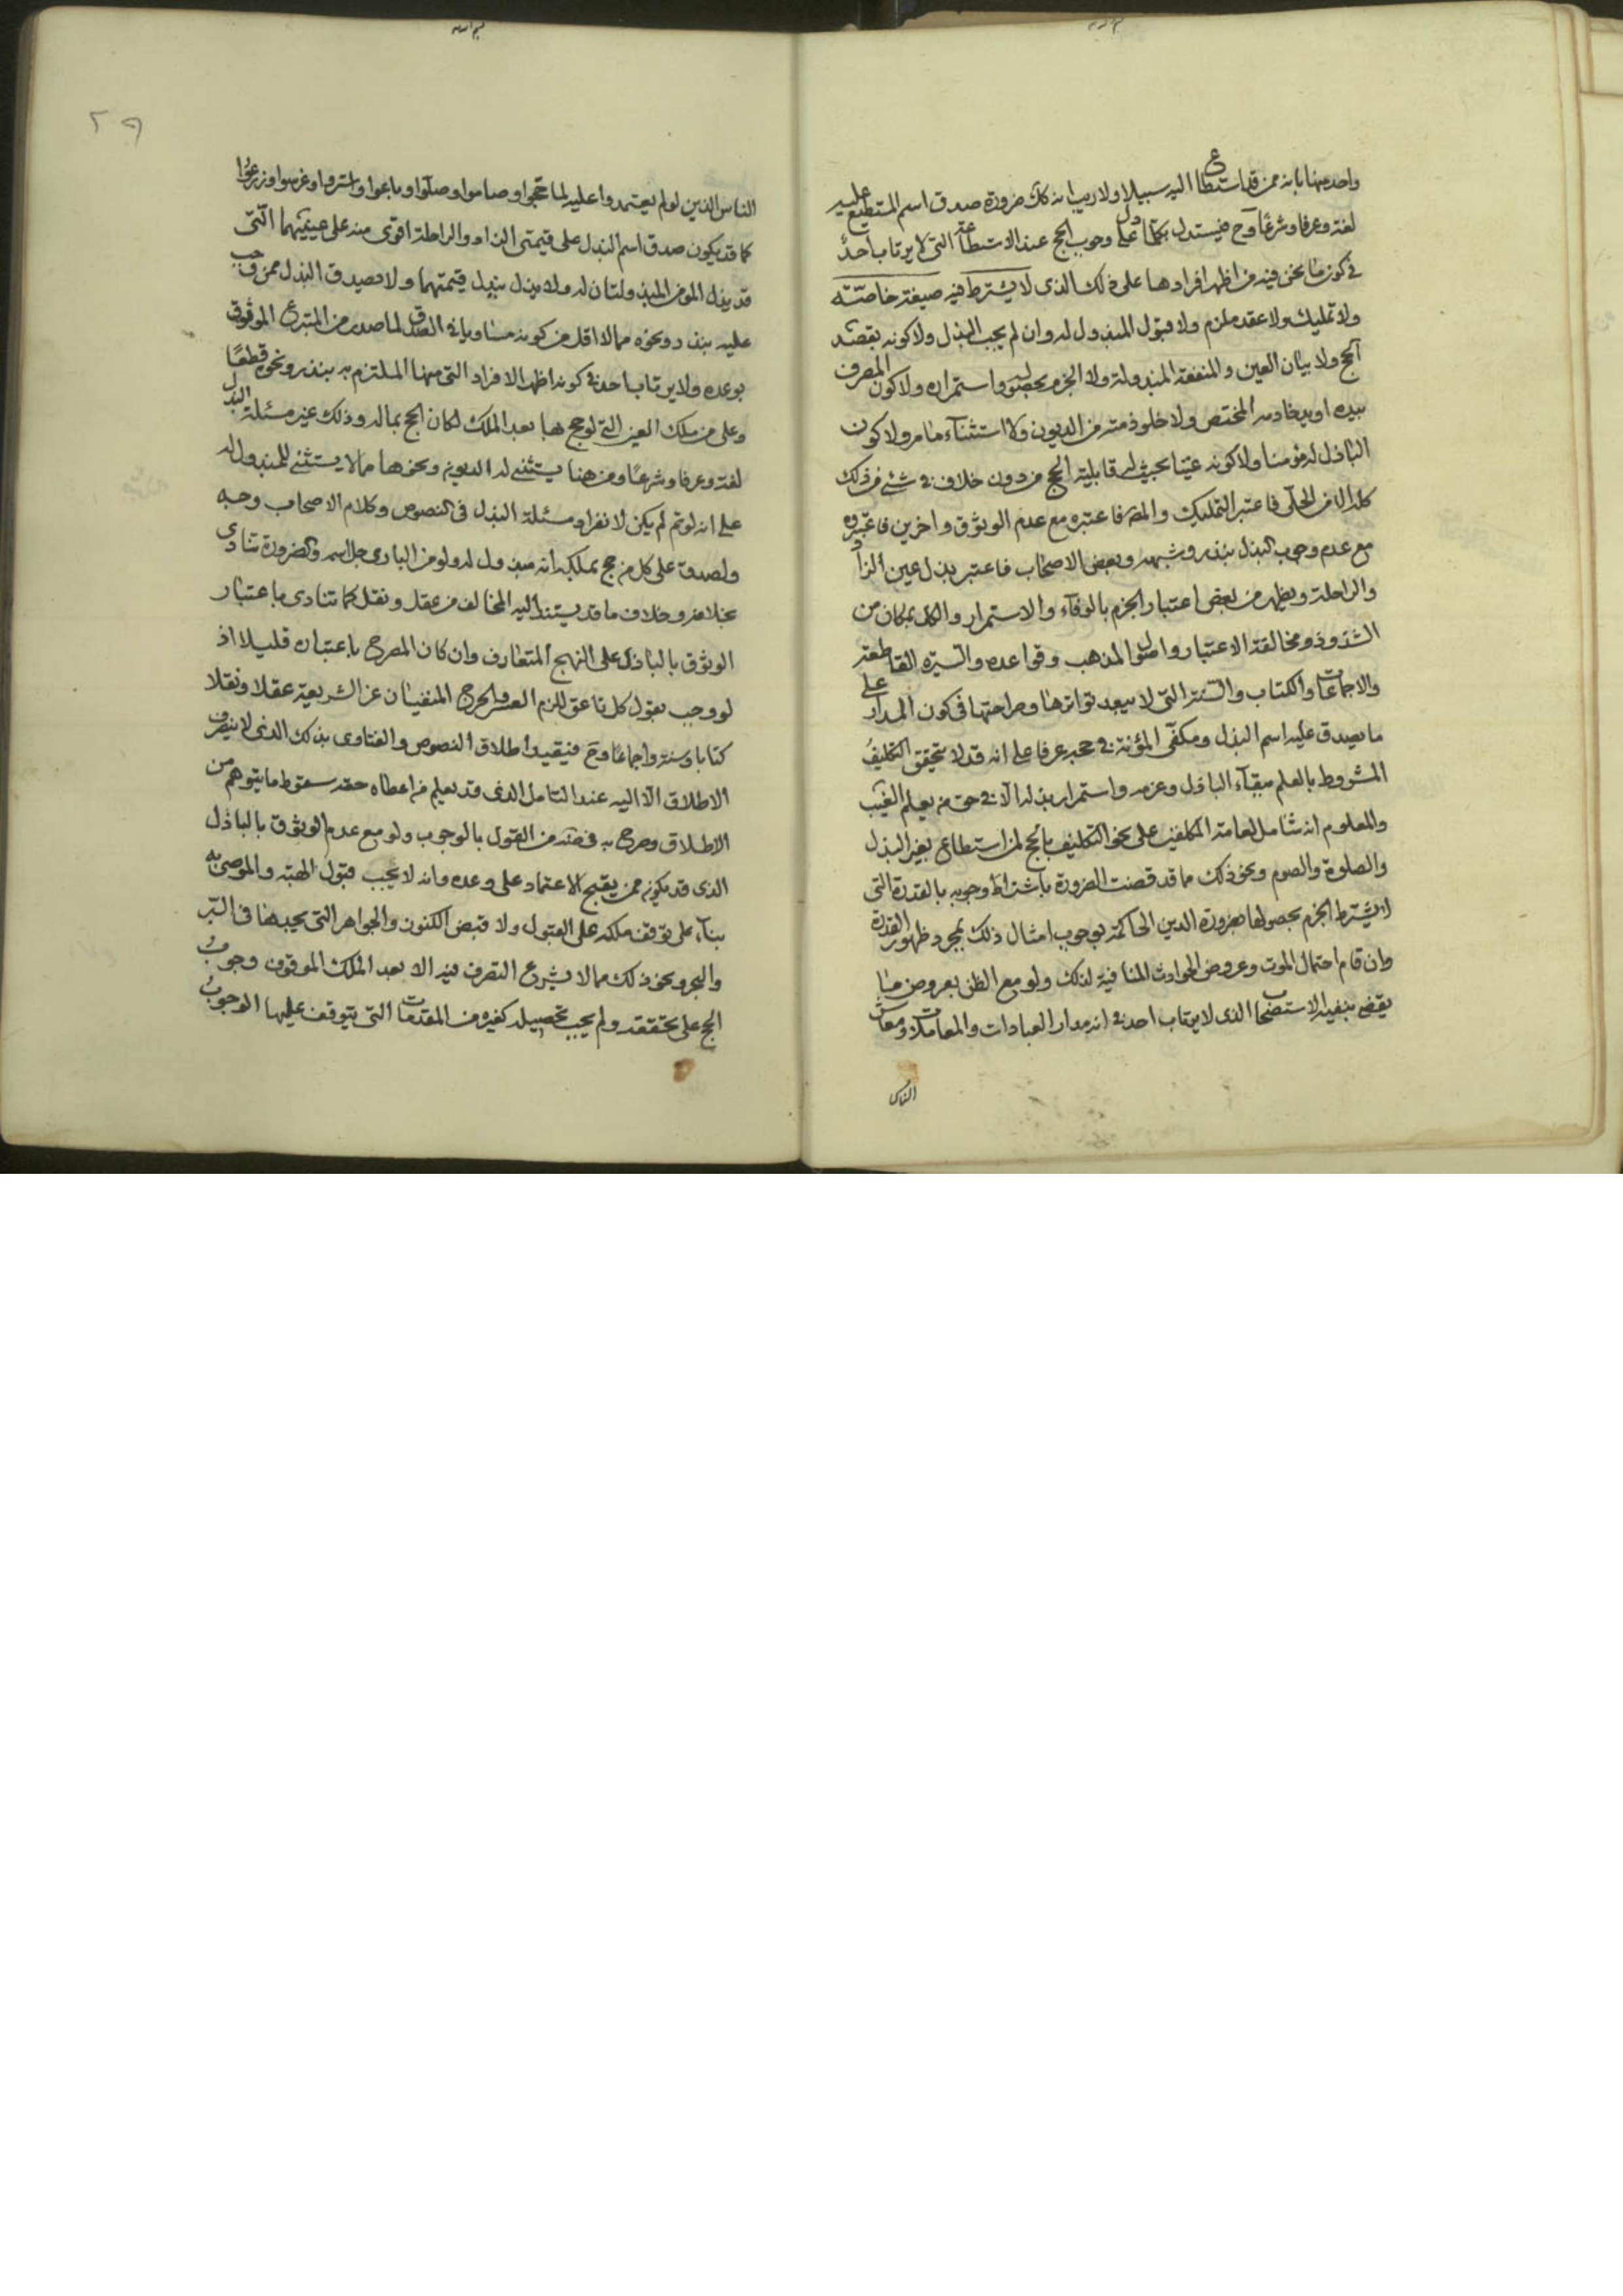 واحد منها بانه ممن قد استطاع اليه سبيلا ولا ريب انه كك ضرورة صدق اسم المستطيع عليه
لغة وعرفا وشرعًا وح فيستدل بكلما دل على وجوب الحج عند الاستطاعة التى لا يرتاب احدٌ
فى كون ما نحن فيه من اظهر افرادها على ذلك الذى لا يشترط فيه صيغة خاصّة
ولا تمليك ولا عقد ملزم ولا قبول المبذول له وان لم يجب البذل ولا كونه بقصد
الحج ولا بيان العين والمنفعة المبذولة ولا الجزم بحصوله واستمراره ولا كون المصرف
بيده او بيد خادمه المختص ولا خلو ذمته من الديون ولا استثناء ما مر ولا كون
الباذل له مؤمنا ولا كونه عينا بحيث له قابلية الحج من دون خلاف فى شئ من ذلك
كله الا من الحلّى فاعتبر التمليك والمص فاعتبره مع عدم الوثوق واخرين فاعتبروه
مع عدم وجوب البذل بنذر وشبهه وبعض الاصحاب فاعتبر بذل عين الزاد
والراحلة ويظهر من بعض اعتبار الجزم بالوفاء والاستمرار والكل بمكان من
الشذوذ ومخالفة الاعتبار واصول المذهب وقواعده والسيرة القاطعة
والاجماعات والكتاب والسنة التى لا يبعد تواترها وصراحتها فى كون المدار على
ما يصدق عليه اسم البذل ومكفّى المؤنة فى حجه عرفا على انه قد لا يتحقق التكليف
المشروط بالعلم ببقاء الباذل وعزمه واستمرار بذله الا فى حق من يعلم الغيب
والمعلوم انه شامل لعامة المكلفين على نحو التكليف بالحج لمن استطاع بغير البذل
والصلوة والصوم ونحو ذلك مما قد قضت الضرورة باشتراط وجوبه بالقدرة التى
لا يشترط الجزم بحصولها ضرورة الدين الحاكمة بوجوب امثال ذلك بمجرد ظهور القدرة
وان قام احتمال الموت وعروض الحوادث المنافية لذلك ولو مع الظن بعروض ما
يقضى بنفيه الاستصحاب الذى لا يرتاب احد فى انه مدار العبادات والمعاملات ومعاش
الناس
الناس الذين لو لم يعتمدوا عليه لما حجّوا وصاموا وصلّوا وباعوا واشتروا وغرسوا وزرعوا
كما قد يكون صدق اسم البذل على قيمتى الزاد والراحلة اقوى منه على عينيهما التى
قد يبذل المؤمن المبذولتان له ولا يبذل بذل قيمتهما ولا يصدق البذل ممن وجب
عليه بنذر ونحوه مما لا اقل من كونه مساويا فى الصدق لما صدر من المتبرع الموثوق
بوعده ولا يرتاب احد فى كونه اظهر الافراد التى منها الملتزم به بنذر ونحوه قطعًا
وعلى من ملك العين التى لو حج بها بعد الملك لكان الحج بماله وذلك غير مسئلة البذل
لغة وعرفا وشرعًا ومن هنا يستثنى له الديون ونحوها مما لا يستثنى للمبذول له
على انه لو تم لم يكن لانفراد مسئلة البذل فى النصوص وكلام الاصحاب وجه
ولصدق على كل من حج بملكه انه مبذول له ولو من البارى جل اسمه والضرورة تنادى
بخلافه وخلاف ما قد يستند اليه المخالف من عقل ونقل كما تنادى باعتبار
الوثوق بالباذل على النهج المتعارف وان كان المصرح باعتباره قليلا اذ
لو وجب بقول كل ناعق للزم العسر والحرج المنفيان عن الشريعة عقلا ونقلا
كتابا وسنة واجماعا وح فيقيد اطلاق النصوص والفتاوى بذلك الذى لا ينصرف
الاطلاق الا اليه عند التامل الذى قد يعلم من اعطاه حقه سقوط ما يتوهم من
الاطلاق وصرح به فى ضه من القول بالوجوب ولو مع عدم الوثوق بالباذل
الذى قد يكون ممن يقبح الاعتماد على وعده وانه لا يجب قبول الهبة والموصى به
بناء على توقف ملكه على القبول ولا قبض الكنوز والجواهر التى يجدها فى البّر
والبحر ونحو ذلك مما لا يشرع التصرف فيه الا بعد الملك الموقوف وجوب
الحج على تحققه ولم يجب تحصيله كغيره من المقدمات التى يتوقف عليها الوجوب